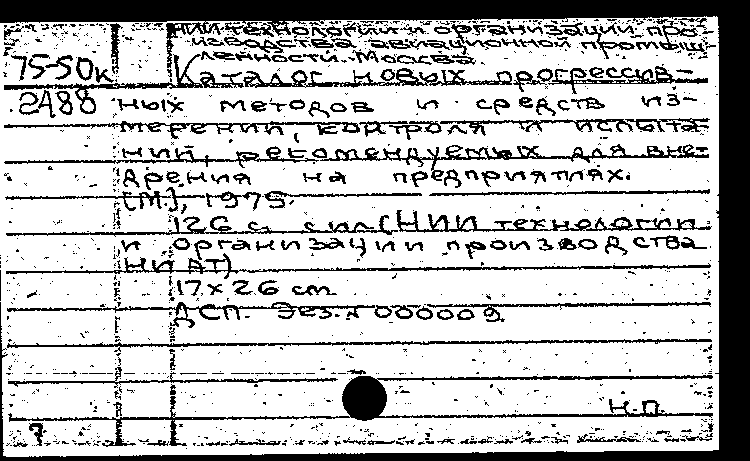 НИИ технологии и организации про-
изводства авиационной промыш-
ленности. Москва.
75-50к
Каталог новых прогрессив-
2А88
ных методов и средств из-
мерений, контроля и испыта-
ний, рекомендуемых для вне-
дрения на предприятиях.
[М.], 1975.
126 с. с ил. (НИИ технологии
и организации производства
НИАТ)
17х26 cm
ДСП. Экз. № 000009.
Н.П.
7